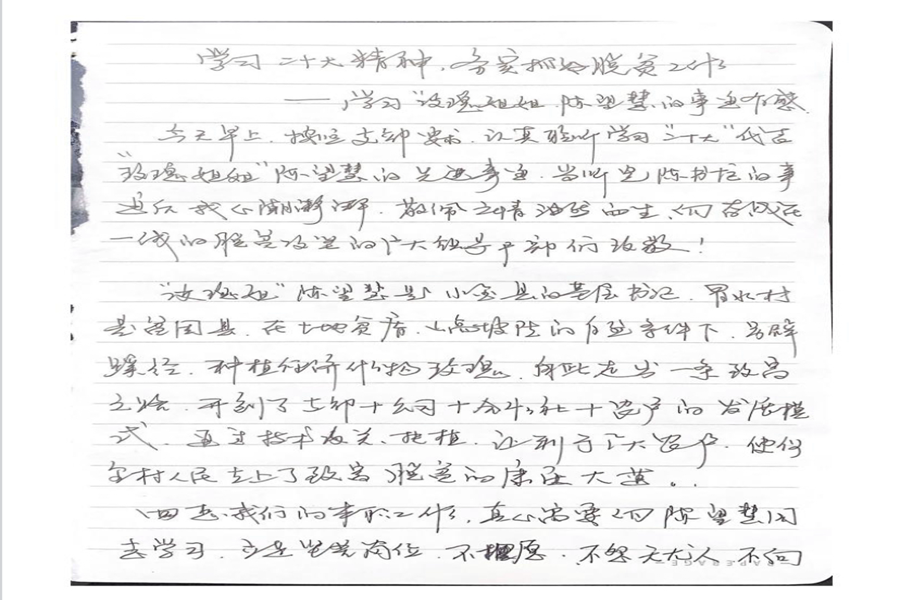 学习二十大精神,务实抓好脱贫工作
——学习"玫瑰姐姐"陈望慧的事迹有感
今天早上,按照支部要求,认真聆听学习"二十大"代表
"玫瑰姐姐"陈望慧的先进事迹,当听完陈书记的事
迹后我心潮澎湃,敬佩之情油然而生,向奋战在
一线的脱贫攻坚的广大领导干部们致敬!
"玫瑰姐"陈望慧是小金县的基层书记,冒水村
是贫困县,在土地贫瘠,山高坡陡的自然条件下,另辟
蹊径,种植经济作物玫瑰,自此走出一条致富
之路,开创了支部+公司+合作社+农户的发展模
式,通过技术攻关,把植,让利于广大农户,使得
全村人民走上了致富脱贫的康庄大道。
回去我们的本职工作,真心需要向陈望慧同
志学习,立足坚定岗位,不埋怨,不怨天尤人,不向
PAPERAGE